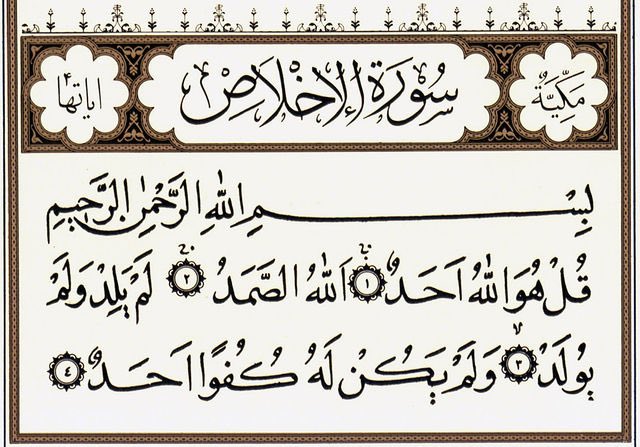 مَكِّيَّةٌ سُورَةُ الإِخْلَاصِ اياتها ٤
بِسْمِ اللهِ الرَّحْمٰنِ الرَّحِيمِ
قُلْ هُوَ اللهُ اَحَدٌ ﴿١﴾ اَللهُ الصَّمَدُ ﴿٢﴾ لَمْ يَلِدْ وَلَمْ
يُولَدْ ﴿٣﴾ وَلَمْ يَكُنْ لَهُ كُفُوًا اَحَدٌ ﴿٤﴾